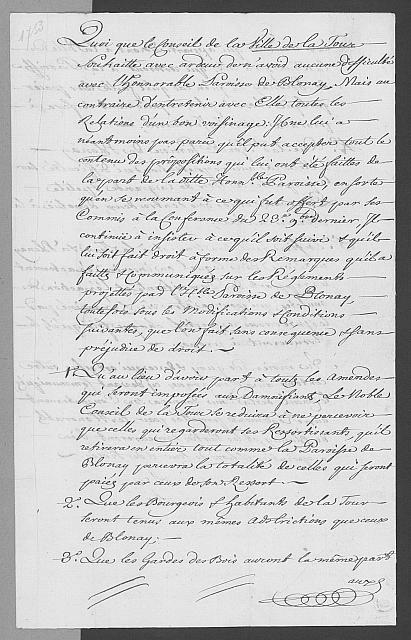 1753
Quoi que le Conseil de la Ville de la Tour
souhaitte avec ardeur de n'avoir aucune difficulté
avec l'Honnorable Paroisse de Blonay, Mais au
contraire d'entretenir avec Elle toutes les
Relations d'un bon voisinage, Il ne lui a
néantmoins pas paru qu'il put accepter tout le
contenu des propositions qui lui ont été faittes de
la part de la ditte Honn.ble Paroisse, ensorte
qu'en se resumant à ce qui fut offert par ses
Commis à la Conference du 23.e 9.bre dernier, Il
continue à insister à ce qu'il soit suivi & qu'il
lui soit fait droit à forme des Remarques qu'il a
faittes & communiqués sur les Réglements
projettés par l'H.ble Paroisse de Blonay,
toutefois sous les Modifications & Conditions
suivantes, que l'on fait sans conséquence & sans
préjudice de droit. ~
1.° Qu'au lieu d'avoir part à touts les Amendes
qui seront imposées aux Damnifiants, Le Noble
Conseil de la Tour se reduira à ne percevoir
que celles qui regarderont ses Ressortissants, qu'il
retirera en entier tout comme la Paroisse de
Blonay percevra la totalité de celles qui seront
paiés par ceux de son Ressort. ~
2.° Que les Bourgeois & habitants de la Tour
seront tenus aux mêmes Adstrictions que ceux
de Blonay; ~
3.° Que les Gardes des Bois auront la même part
aux